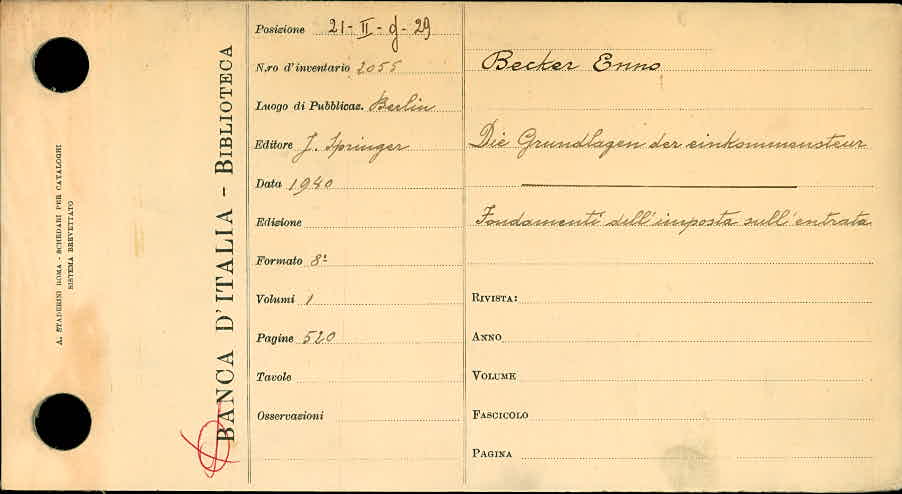 A. STADERINI ROMA - SCHEDARI PER CATALOGHI
SISTEMA BREVETTATO
BANCA D'ITALIA - BIBLIOTECA
Posizione 21-II-g-29
N.ro d'inventario 2055
Luogo di Pubblicaz. Berlin
Editore J. Springer
Data 1940
Edizione
Formato 8º
Volumi 1
Pagine 520
Tavole
Osservazioni
Becker Enno
Die Grundlagen der einkommensteur
Fondamenti dell'imposta sull'entrata
RIVISTA:
ANNO
VOLUME
FASCICOLO
PAGINA